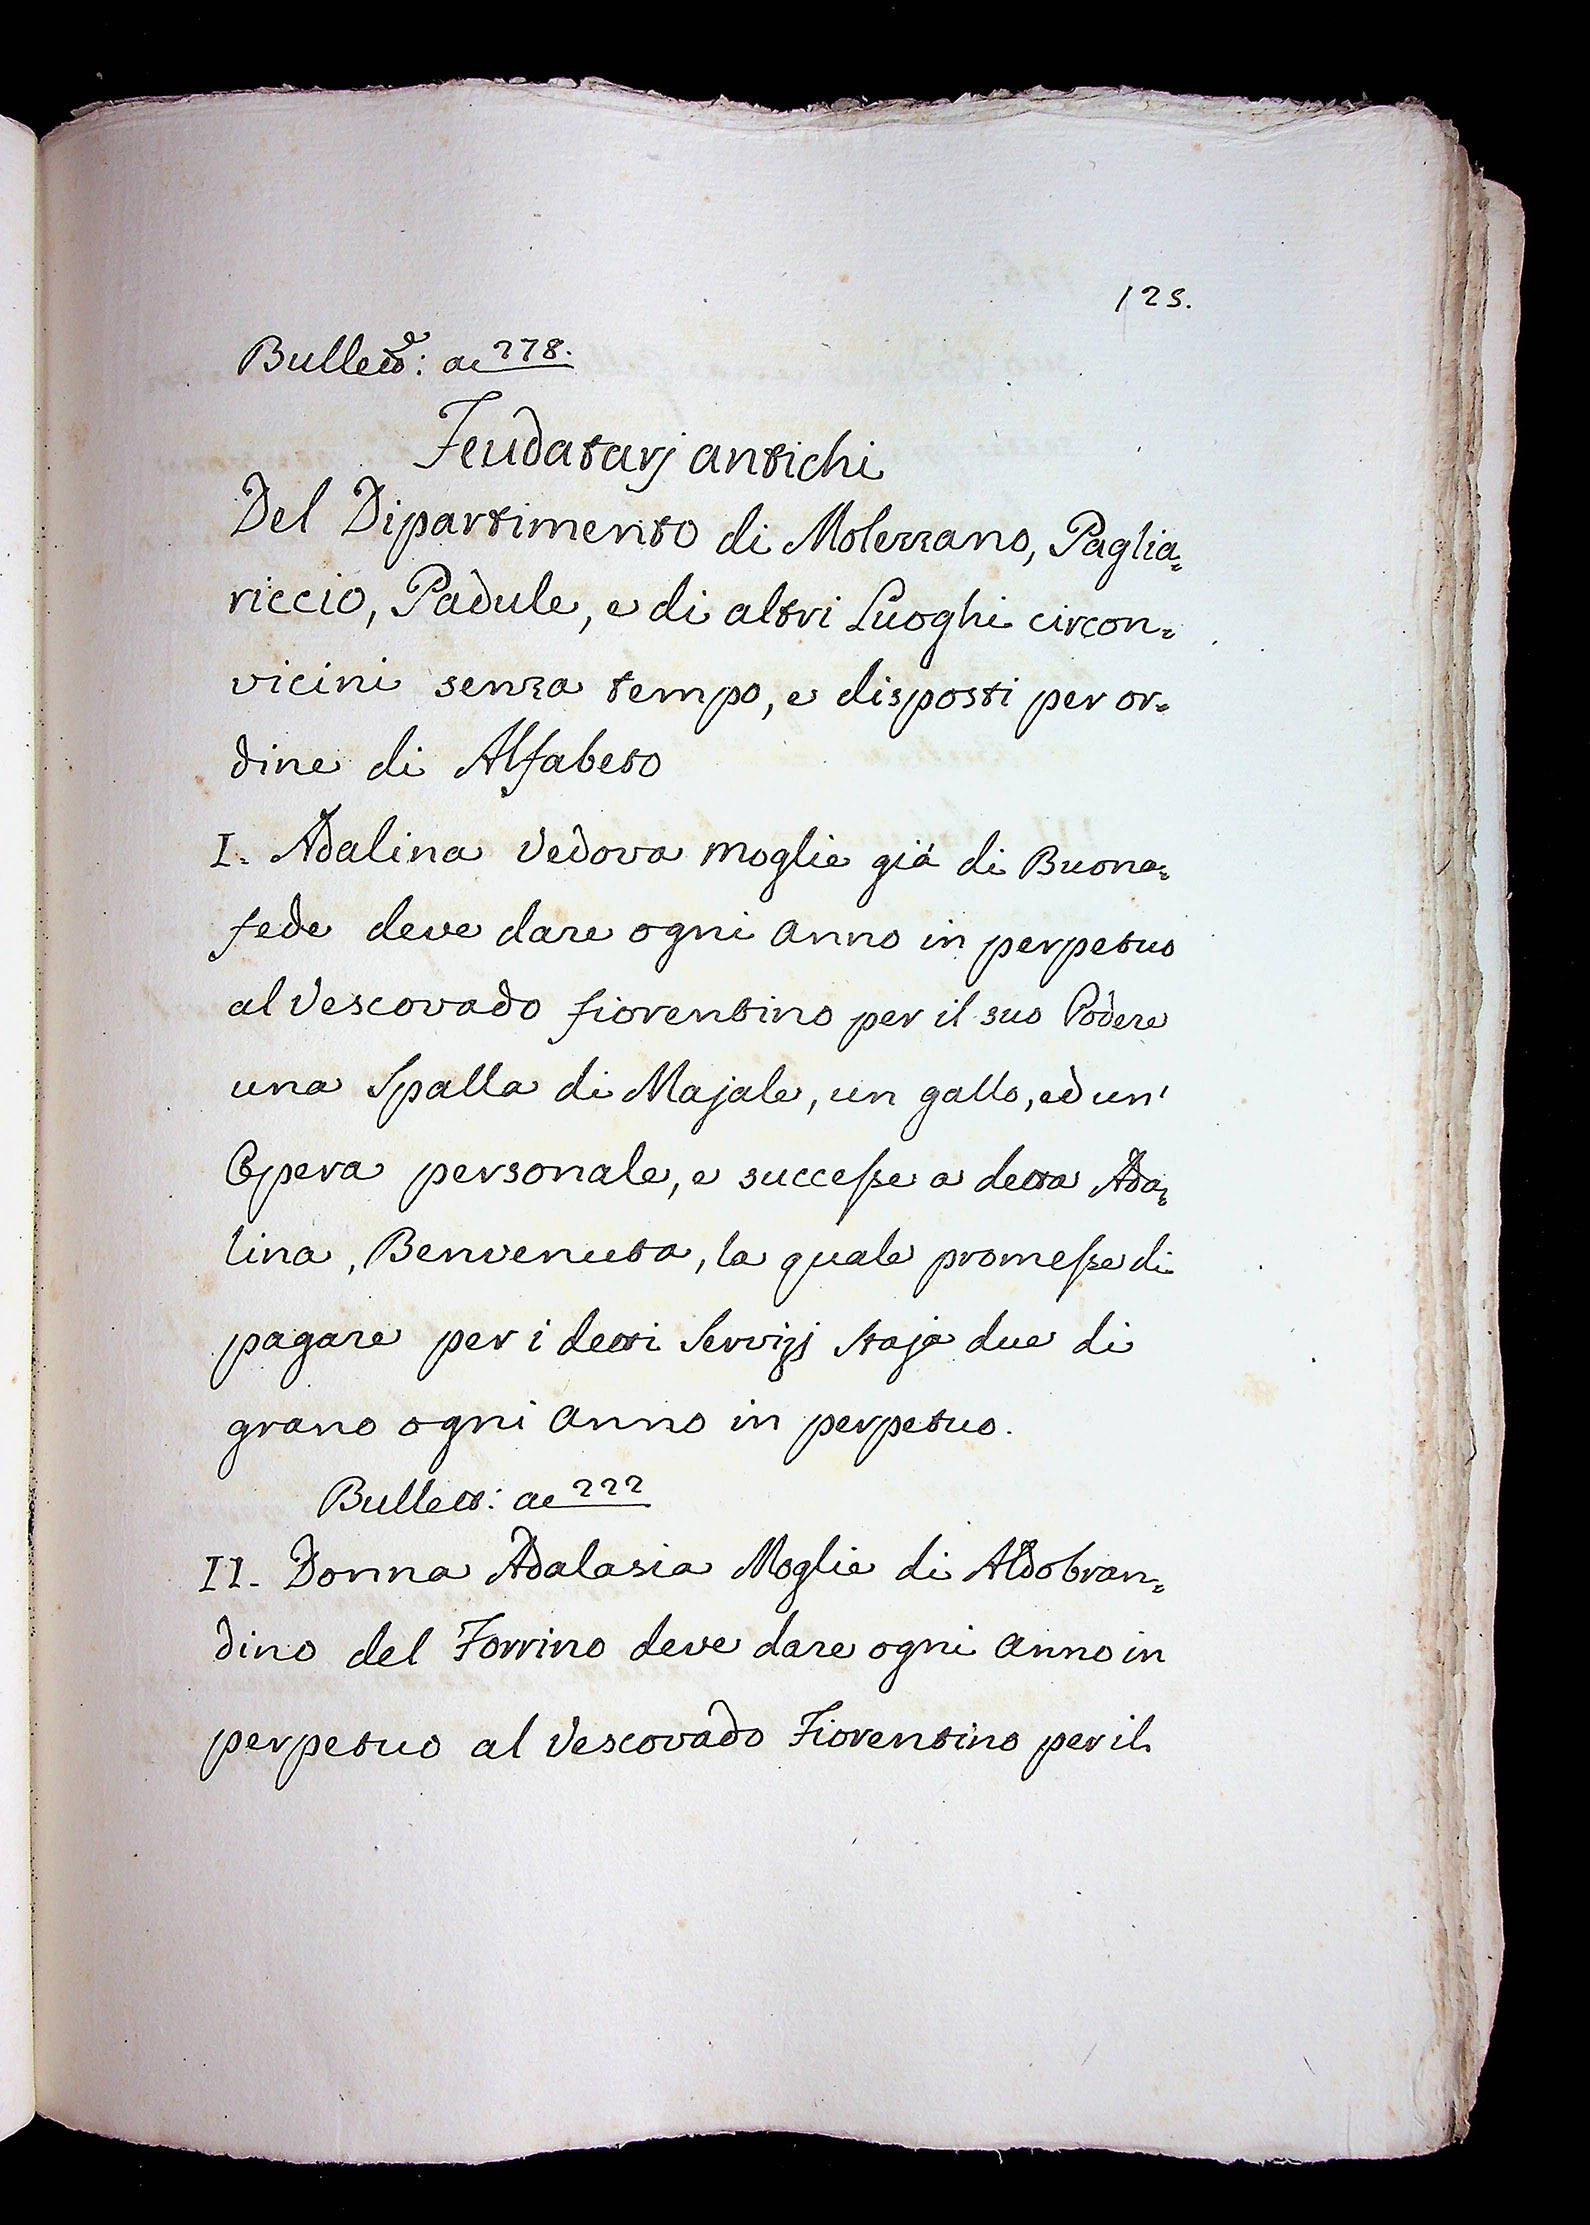 125.
Bullett.º: ac 278.
Feudatarj antichi
Del Dipartimento di Molezzano, Paglia=
riccio, Padule, e di altri Luoghi circon=
vicini senza tempo, e disposti per or=
dine di Alfabeto
I. Adalina Vedova moglie già di Buona=
fede deve dare ogni Anno in perpetuo
al Vescovado fiorentino per il suo Podere
una Spalla di Majale, un gallo, ed un'
Opera personale, e successe a detta Ada=
lina, Benvenuta, la quale promesse di
pagare per i detti Servizj Staja due di
grano ogni Anno in perpetuo.
Bullett: ac 222
II. Donna Adalasia Moglie di Aldobran=
dino del Torrino deve dare ogni Anno in
perpetuo al Vescovado Fiorentino per il